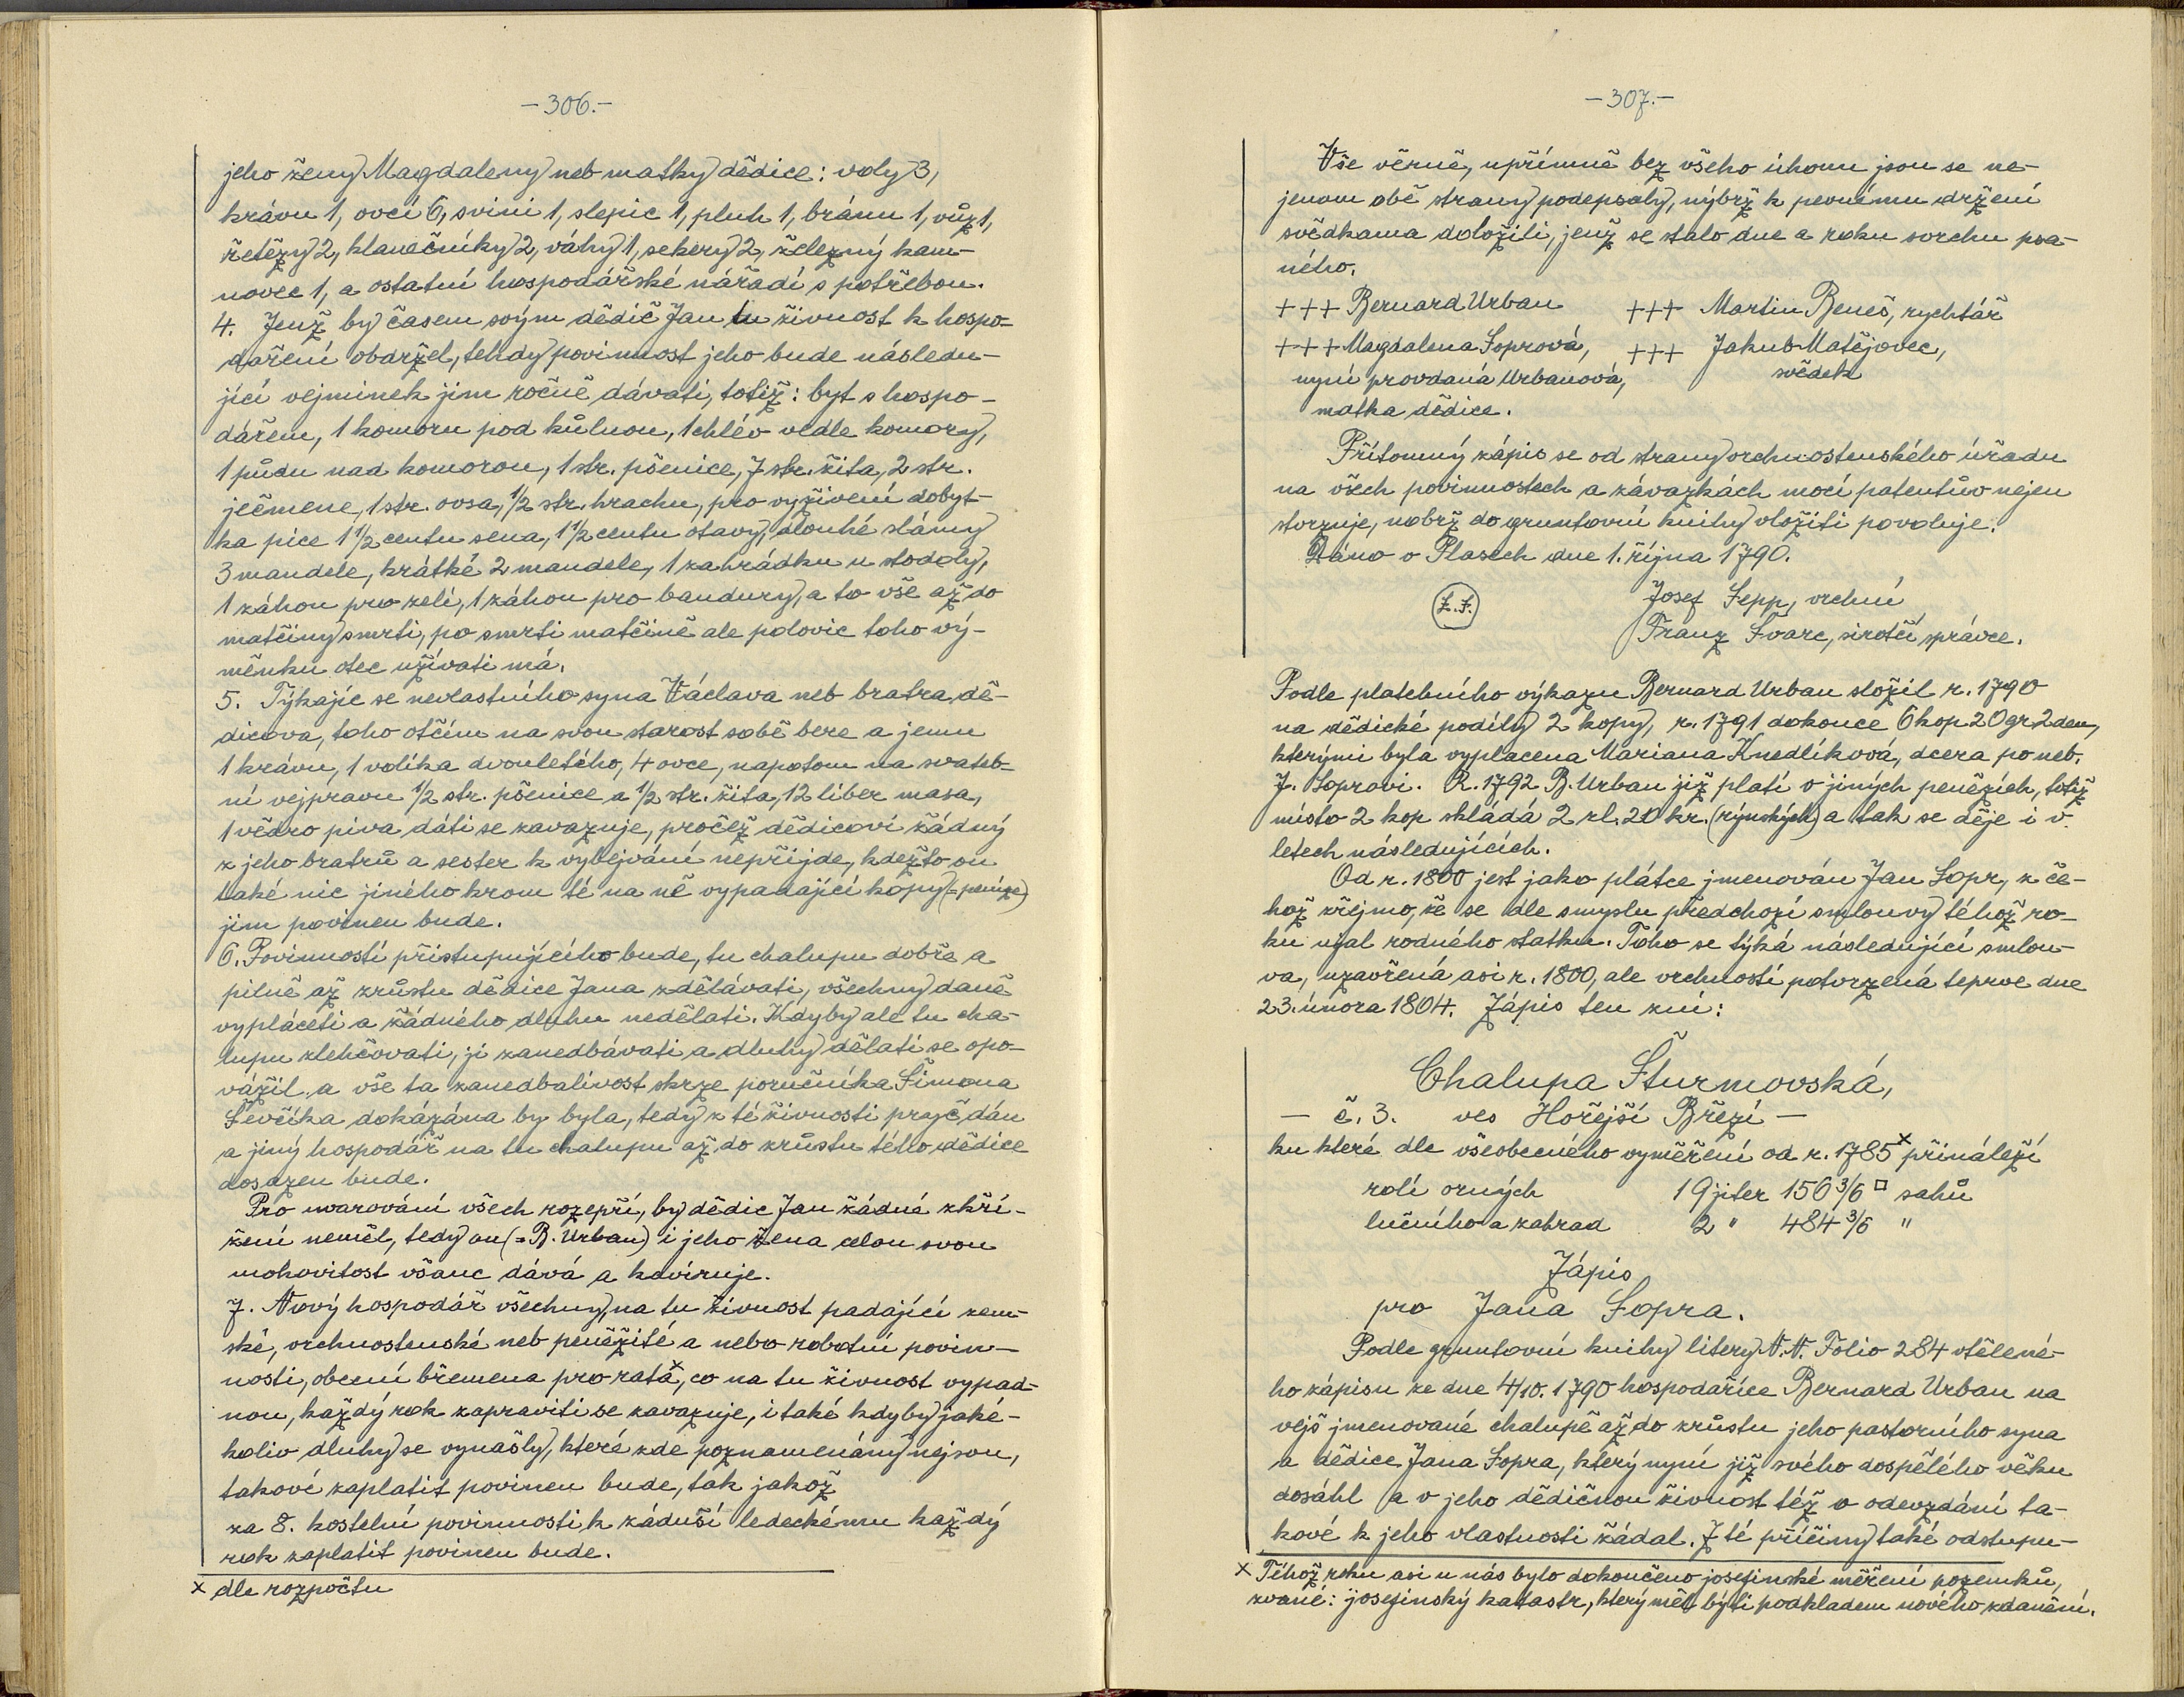 -306.-
jeho ženy Magdaleny neb matky dědice: voly 3,
krávu 1, ovcí 6, svini 1, slepic 1, pluh 1, bránu 1, vůz 1,
řetězy 2, klanečníky 2, váhy 1, sekery 2, železný kam-
novec 1, a ostatní hospodářské nářadí s potřebou.
4. Jenž by časem svým dědič Jan tu živnost k hospo-
daření obdržel, tehdy povinnost jeho bude následu-
jící vejminek jim ročně dávati, totiž: byt s hospo-
dářem, 1 komoru pod kůlnou, 1 chlév vedle komory,
1 půdu nad komorou, 1 str. pšenice, 7 str. žita, 2 str.
ječmene, 1 str. ovsa, 1/2 str. hrachu, pro vyživení dobyt-
ka píce 1 1/2 centu sena, 1 1/2 centu otavy, dlouhé slámy
3 mandele, krátké 2 mandele, 1 zahrádku u stodoly,
1 záhon pro zelí, 1 záhon pro bandury, a to vše až do
matčiny smrti, po smrti matčině ale polovic toho vý-
měnku otec užívati má.
5. Týkajíc se nevlastního syna Václava neb bratra dě-
dicova, toho otčím na svou starost sobě bere a jemu
1 krávu, 1 volíka dvouletého, 4 ovce, napotom na svateb-
ní vejpravu 1/2 str. pšenice a 1/2 str. žita, 12 liber masa,
1 vědro piva dáti se zavazuje, pročež dědicovi žádný
z jeho bratrů a sester k vybejvání nepřijde, kdežto on
také nic jiného krom té na ně vypadající kopy (= peníze)
jim povinen bude.
6. Povinností přistupujícího bude, tu chalupu dobře a
pilně až zrůstu dědice Jana zdělávati, všechny daně
vypláceti a žádného dluhu nedělati. Kdyby ale tu cha-
lupu zlehčovati, ji zanedbávati a dluhy dělati se opo-
vážil, a vše ta zanedbalivost skrze poručníka Šimona
Ševčíka dokázána by byla, tedy z té živnosti pryč dán
a jiný hospodář na tu chalupu až do zrůstu tého dědice
dosazen bude.
Pro uvarování všech rozepří, by dědic Jan žádné zkří-
žení neměl, tedy on (= B. Urban) i jeho žena celou svou
mohovitost všanc dává a kavíruje.
7. Nový hospodář všechny, na tu živnost padající zem-
ské, vrchnostenské neb peněžité a nebo robotní povin-
nosti, obecní břemena pro rata x, co na tu živnost vypad-
nou, každý rok zapraviti se zavazuje, i také kdyby jaké-
koliv dluhy se vynašly, které zde poznamenány nejsou,
takové zaplatit povinen bude, tak jakož
za 8. kostelní povinnosti k záduší ledeckému každý
rok zaplatit povinen bude.
x dle rozpočtu
-307.-
Vše věrně, upřímně bez všeho úhonu jsou se ne-
jenom obě strany podepsaly, nýbrž k pevnému držení
svědkama doložili, jenž se stalo dne a roku svrchu psa-
ného.
+++ Bernard Urban +++ Martin Beneš, rychtář
+++ Magdalena Soprová, +++ Jakub Matějovec,
nyní provdaná Urbanová, svědek
matka dědice.
Přítomný zápis se od strany vrchnostenského úřadu
na všech povinnostech a závazkách mocí patentův nejen
stvrzuje, nobrž do gruntovní knihy vložiti povoluje.
Dáno v Plasech dne 1. října 1790.
L.S. Josef Sepp, vrchní
Franz Švarc, sirotčí správce.
Podle platebního výkazu Bernard Urban složil r. 1790
na dědické podíly 2 kopy, r. 1791 dokonce 6 kop 20 gr 2 den,
kterými byla vyplacena Mariana Knedlíková, dcera po neb.
J. Soprovi. R. 1792 B. Urban již platí v jiných penězích, totiž
místo 2 kop skládá 2 zl. 20 kr. (rýnských) a tak se děje i v
letech následujících.
Od r. 1800 jest jako plátce jmenován Jan Sopr, z če-
hož zřejmo, že se dle smyslu předchozí smlouvy téhož ro-
ku ujal rodného statku. Toho se týká následující smlou-
va, uzavřená asi r. 1800, ale vrchností potvrzená teprve dne
23. února 1804. Zápis ten zní:
Chalupa Šturmovská,
- č. 3. ves Hořejší Březí -
ku které dle všeobecného vyměření od r. 1785 x přináleží
rolí orných 19 jiter 156 3/6 □ sahů
lučního a zahrad 2 " 484 3/6 "
Zápis
pro Jana Sopra.
Podle gruntovní knihy litery N.N. Folio 284 vtělené-
ho zápisu ze dne 4/10. 1790 hospodařícc Bernard Urban na
vejš jmenované chalupě až do zrůstu jeho pastorního syna
a dědice Jana Sopra, který nyní již svého dospělého věku
dosáhl a v jeho dědičnou živnost též o odevzdání ta-
kové k jeho vlastnosti žádal. Z té příčiny také odstupu-
x Téhož roku asi u nás bylo dokončeno josefinské měření pozemků,
zvané: josefinský katastr, který měl býti podkladem nového zdanění.